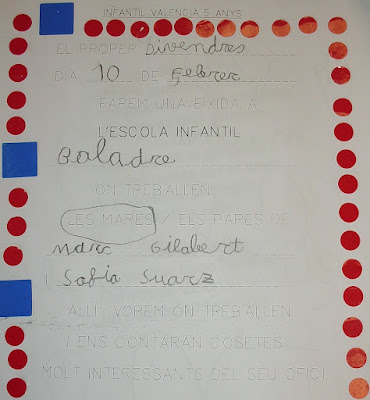 INFANTIL VALENCIÀ 5 ANYS
EL PROPER Divendres
DIA 10 DE Febrer
FAREM UNA EIXIDA A
L'ESCOLA INFANTIL
Baladre
ON TREBALLEN
LES MARES / ELS PARES DE
Marc Gilabert
Sofia Suarz
ALLÍ VOREM ON TREBALLEN
I ENS CONTARAN COSETES
MOLT INTERESSANTS DEL SEU OFICI